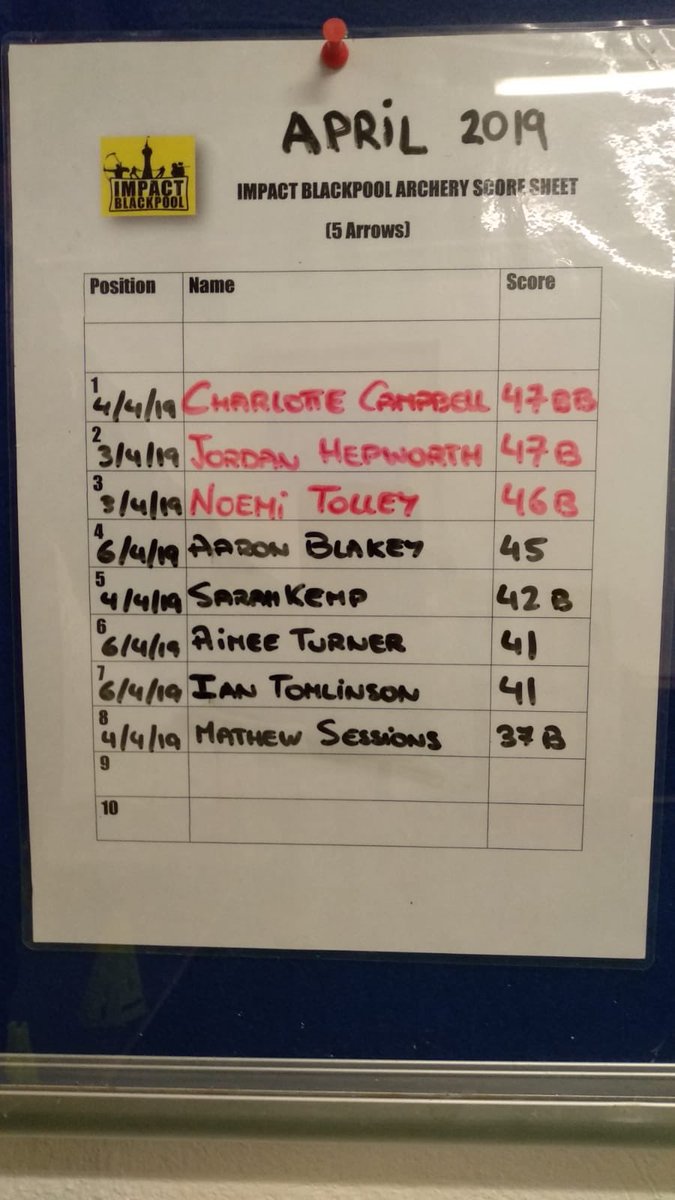 APRIL 2019
IMPACT
BLACKPOOL
IMPACT BLACKPOOL ARCHERY SCORE SHEET
(5 Arrows)
Position Name Score
1 4/4/19 CHARLOTTE CAMPBELL 47 BB
2 3/4/19 JORDAN HEPWORTH 47 B
3 3/4/19 NOEMI TOLLEY 46 B
4 6/4/19 AARON BLAKEY 45
5 4/4/19 SARAH KEMP 42 B
6 6/4/19 AIMEE TURNER 41
7 6/4/19 IAN TOMLINSON 41
8 4/4/19 MATHEW SESSIONS 37 B
9
10